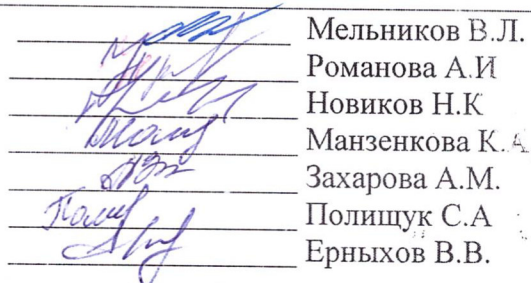 Мельников В.Л.
Романова А.И
Новиков Н.К
Манзенкова К.А
Захарова А.М.
Полищук С.А
Ерныхов В.В.